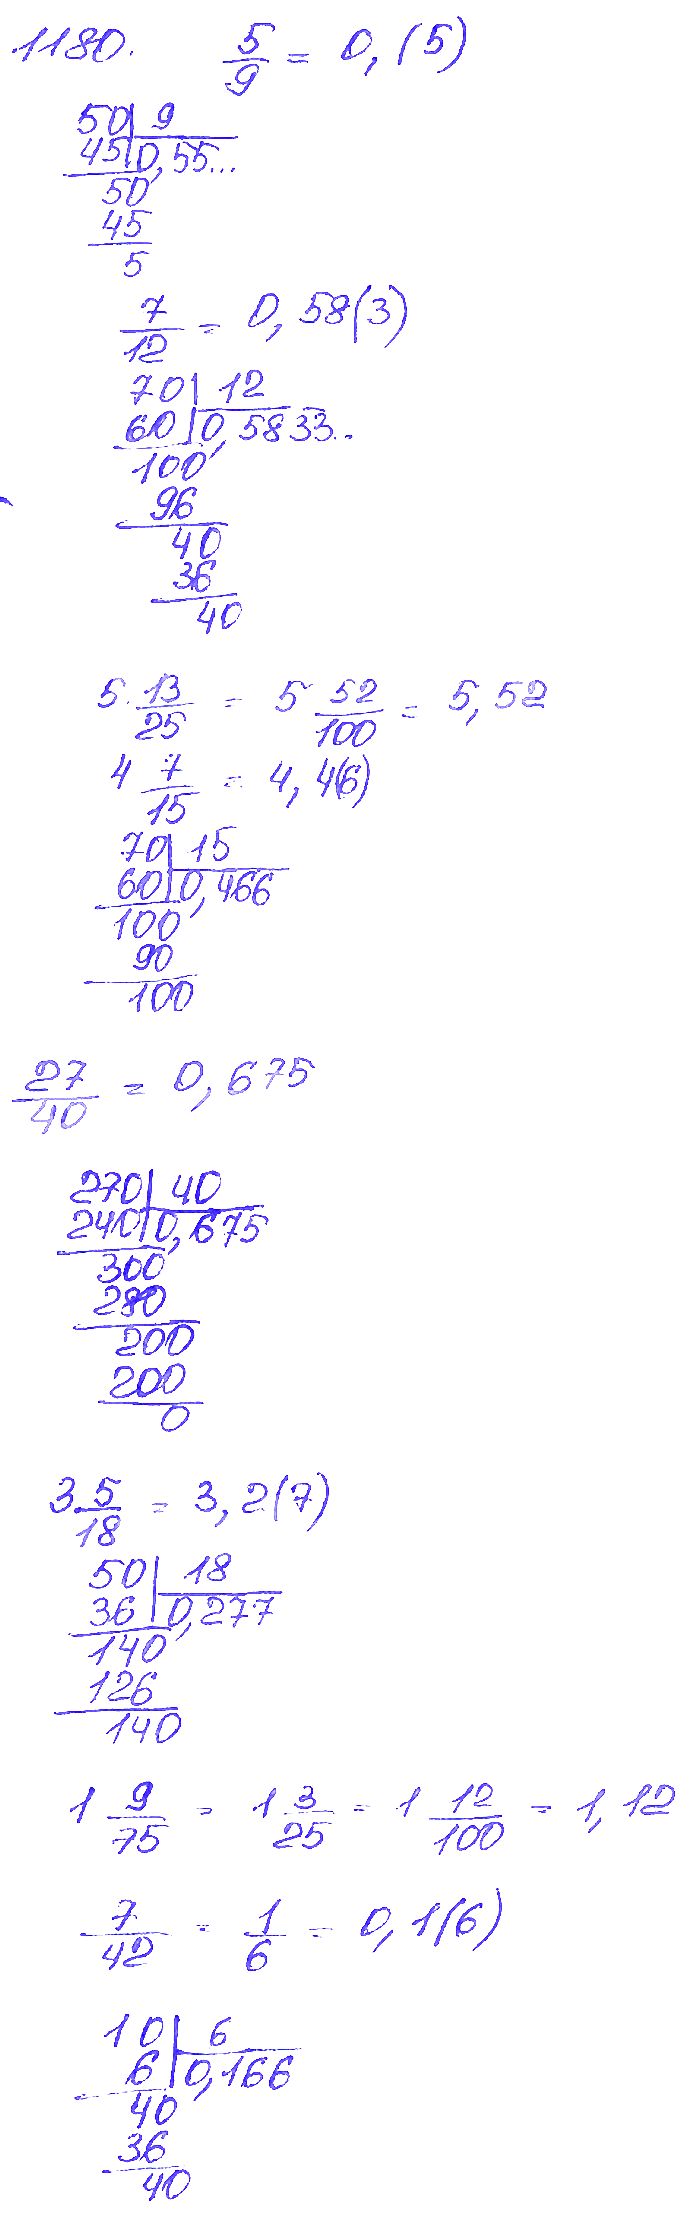 1180. 5/9 = 0,(5)
50 | 9
45 | 0,55...
50
45
5
7/12 = 0,58(3)
70 | 12
60 | 0,5833..
100
96
40
36
40
5 13/25 = 5 52/100 = 5,52
4 7/15 = 4,4(6)
70 | 15
60 | 0,466
100
90
100
27/40 = 0,675
270 | 40
240 | 0,675
300
280
200
200
0
3 5/18 = 3,2(7)
50 | 18
36 | 0,277
140
126
140
1 9/75 = 1 3/25 = 1 12/100 = 1,12
7/42 = 1/6 = 0,1(6)
10 | 6
6 | 0,166
40
36
40